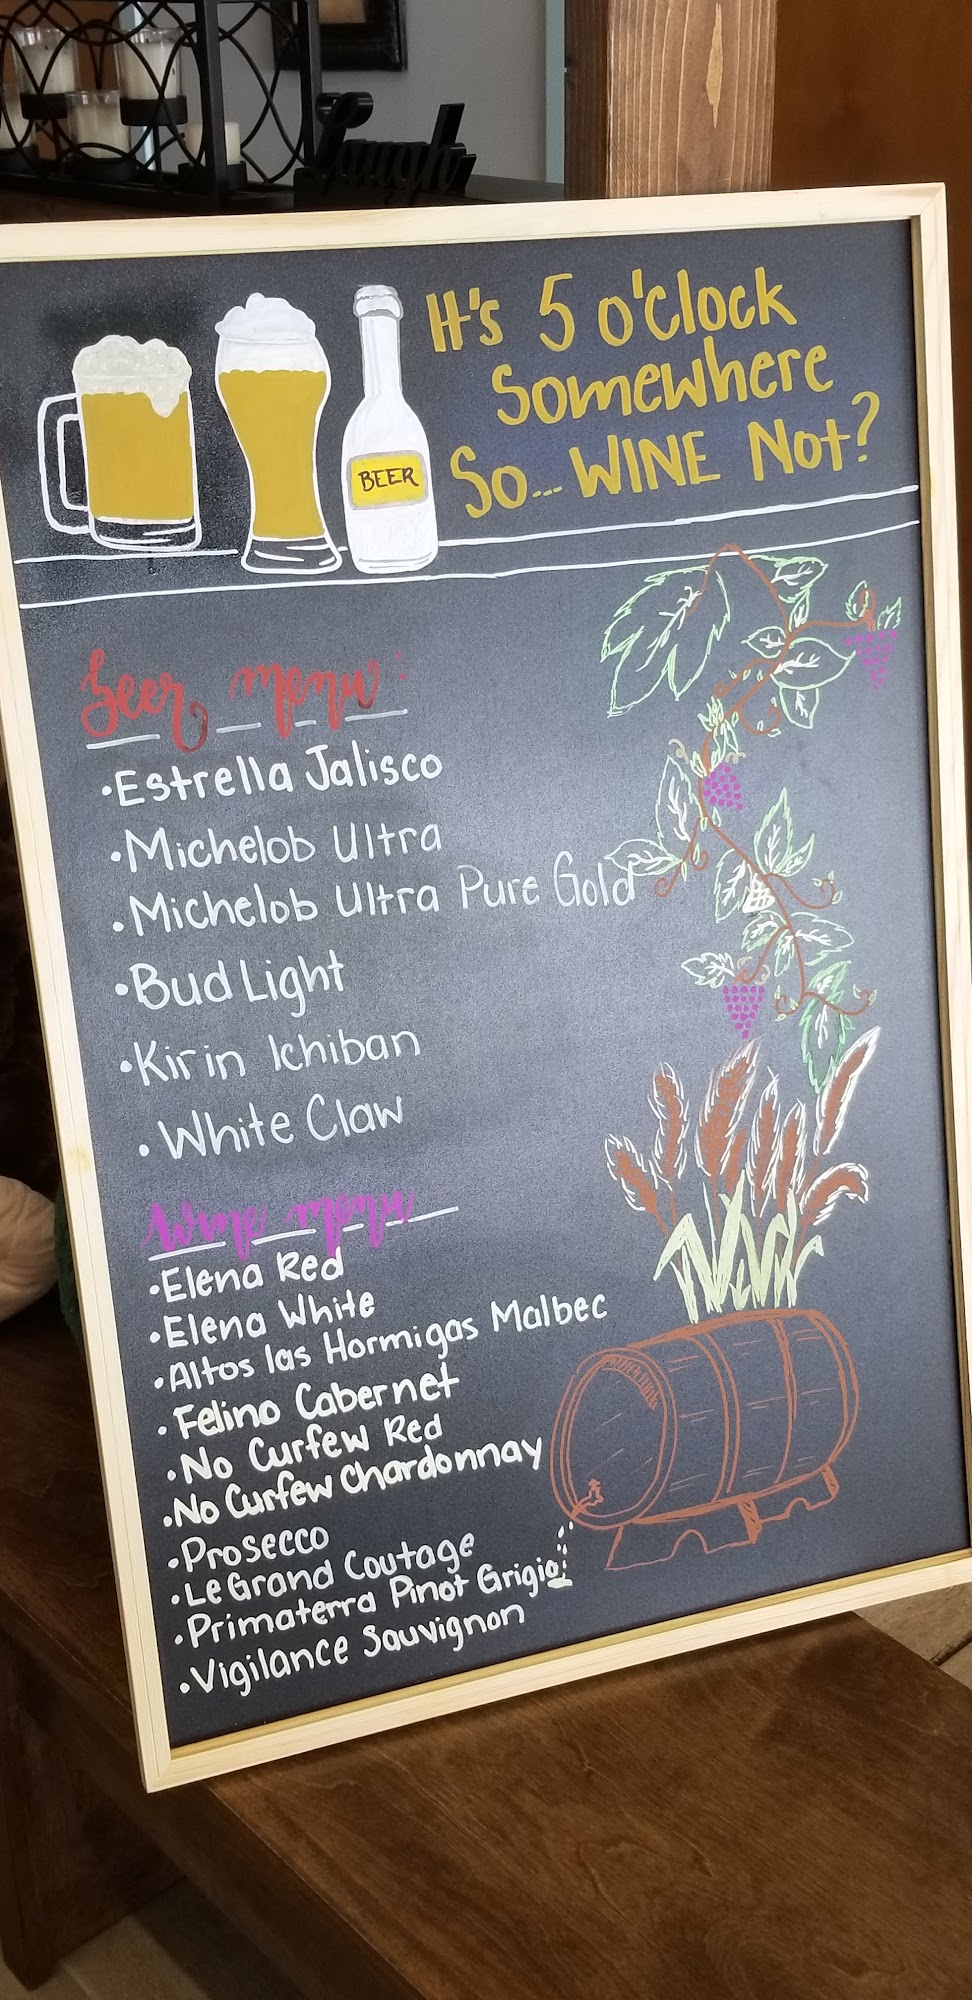 Laugh
It's 5 o'clock
Somewhere
So... WINE Not?
BEER
Beer menu:
• Estrella Jalisco
• Michelob Ultra
• Michelob Ultra Pure Gold
• Bud Light
• Kirin Ichiban
• White Claw
Wine menu:
• Elena Red
• Elena White
• Altos las Hormigas Malbec
• Felino Cabernet
• No Curfew Red
• No Curfew Chardonnay
• Prosecco
• Le Grand Coutage
• Primaterra Pinot Grigio
• Vigilance Sauvignon